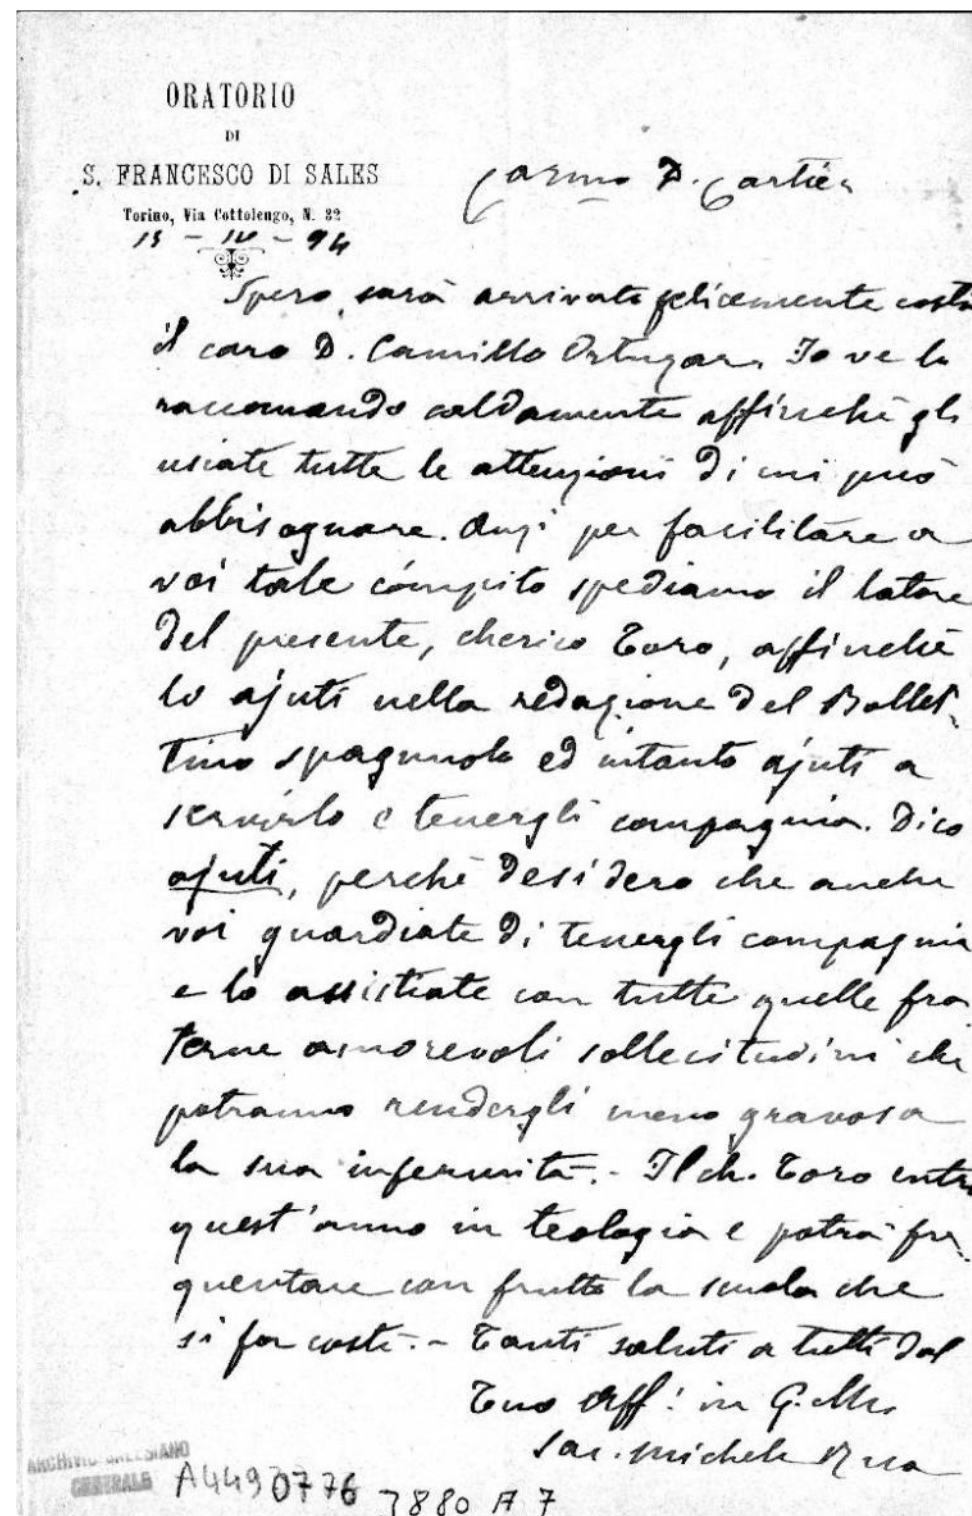 ORATORIO
DI
S. FRANCESCO DI SALES
Torino, Via Cottolengo, N. 32
Carmo D. Cartier
- IV - 94
Spero sarà arrivato felicemente costì
il caro D. Camillo Ortuzar. Io ve lo
raccomando caldamente affinchè gli
usiate tutte le attenzioni di cui può
abbisognare. Anzi per facilitare a
voi tale cómpito spediamo il latore
del presente, cherico Toro, affinchè
lo ajuti nella redazione del Bollet-
tino spagnuolo ed intanto ajuti a
servirlo e tenergli compagnia. Dico
ajuti, perchè desidero che anche
voi guardiate di tenergli compagnia
e lo assistiate con tutte quelle fra-
terne amorevoli sollecitudini che
potranno rendergli meno gravosa
la sua infermità. - Il ch. Toro entra
quest'anno in teologia e potrà fre-
quentare con frutto la scuola che
si fa costì. - Tanti saluti a tutti dal
Tuo Aff. in G. e M.
Sac. Michele Rua
ARCHIVIO SALESIANO
CENTRALE
A4490776
3880 A 7